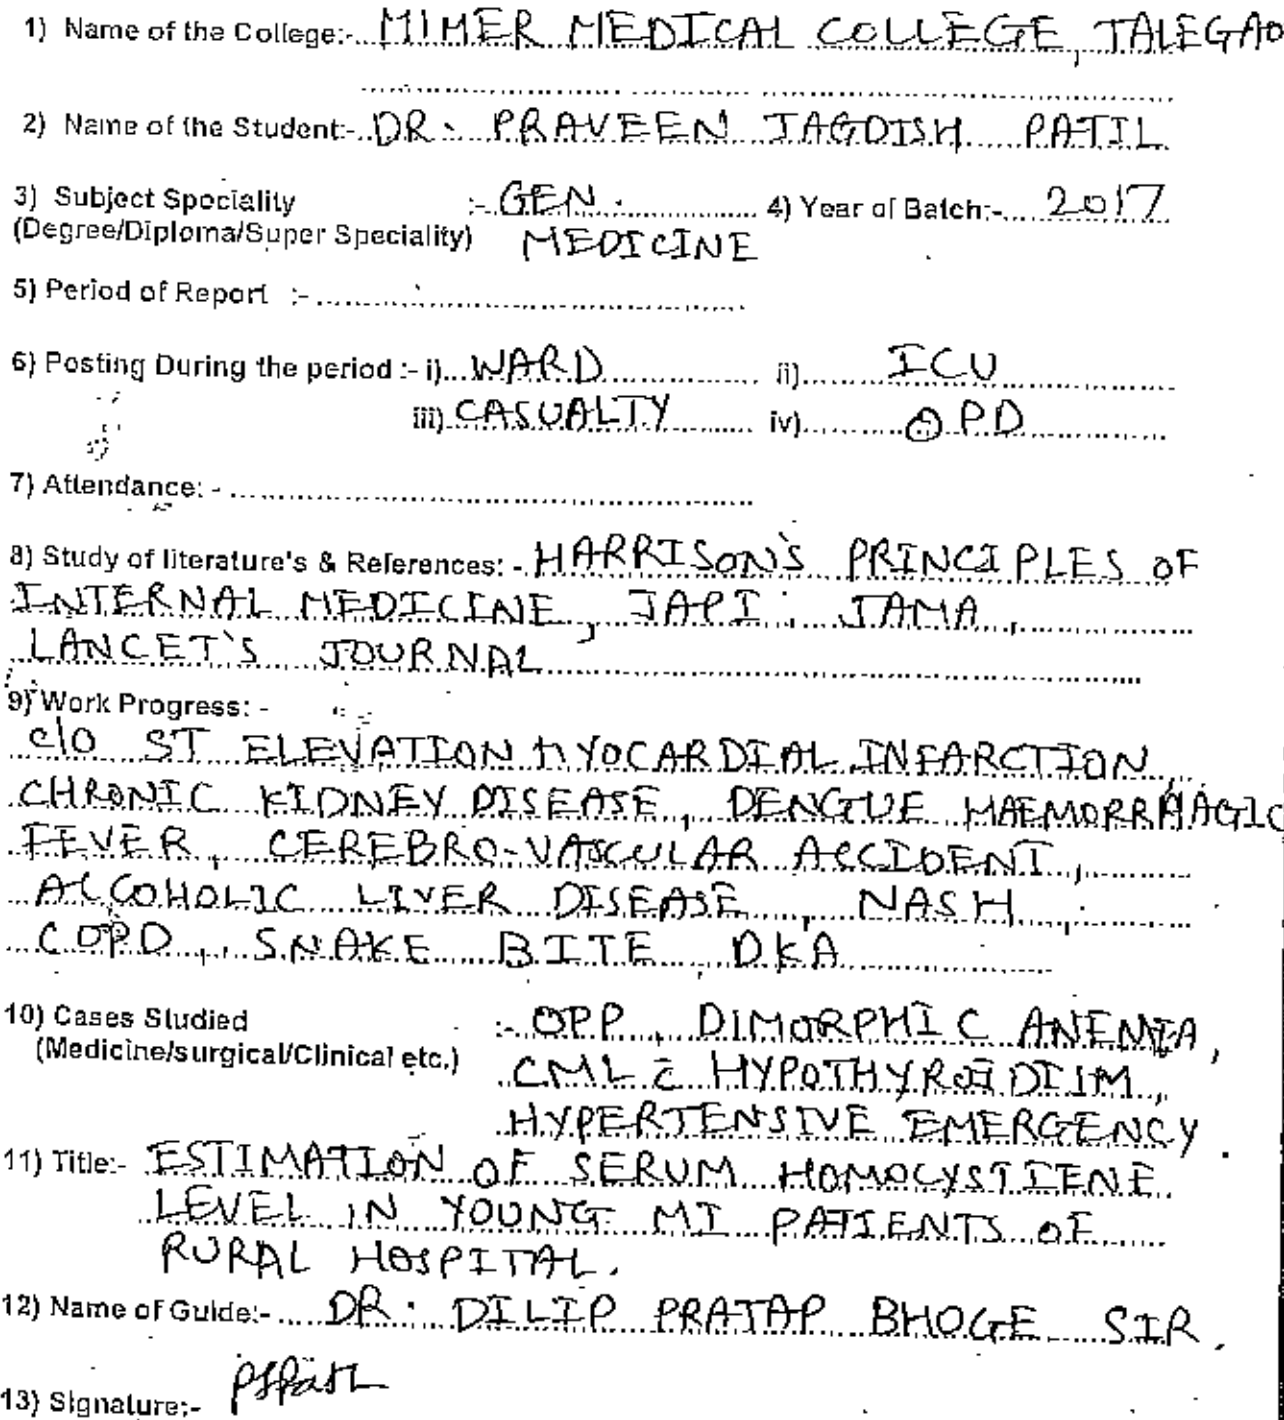 1) Name of the College:- MIMER MEDICAL COLLEGE, TALEGAO
2) Name of the Student:- DR. PRAVEEN JAGDISH PATIL
3) Subject Speciality :- GEN. 4) Year of Batch:- 2017
(Degree/Diploma/Super Speciality) MEDICINE
5) Period of Report :-
6) Posting During the period :- i) WARD ii) ICU
iii) CASUALTY iv) OPD
7) Attendance: -
8) Study of literature's & References: - HARRISON'S PRINCIPLES OF
INTERNAL MEDICINE, JAPI, JAMA,
LANCET'S JOURNAL
9) Work Progress: -
c/o ST ELEVATION MYOCARDIAL INFARCTION,
CHRONIC KIDNEY DISEASE, DENGUE HAEMORRHAGIC
FEVER, CEREBRO-VASCULAR ACCIDENT,
ALCOHOLIC LIVER DISEASE, NASH,
COPD, SNAKE BITE, DKA
10) Cases Studied :- OPP, DIMORPHIC ANEMIA,
(Medicine/surgical/Clinical etc.) CML c̄ HYPOTHYROIDIIM,
HYPERTENSIVE EMERGENCY.
11) Title:- ESTIMATION OF SERUM HOMOCYSTIENE
LEVEL IN YOUNG MI PATIENTS OF
RURAL HOSPITAL.
12) Name of Guide:- DR. DILIP PRATAP BHOGE SIR.
13) Signature:-